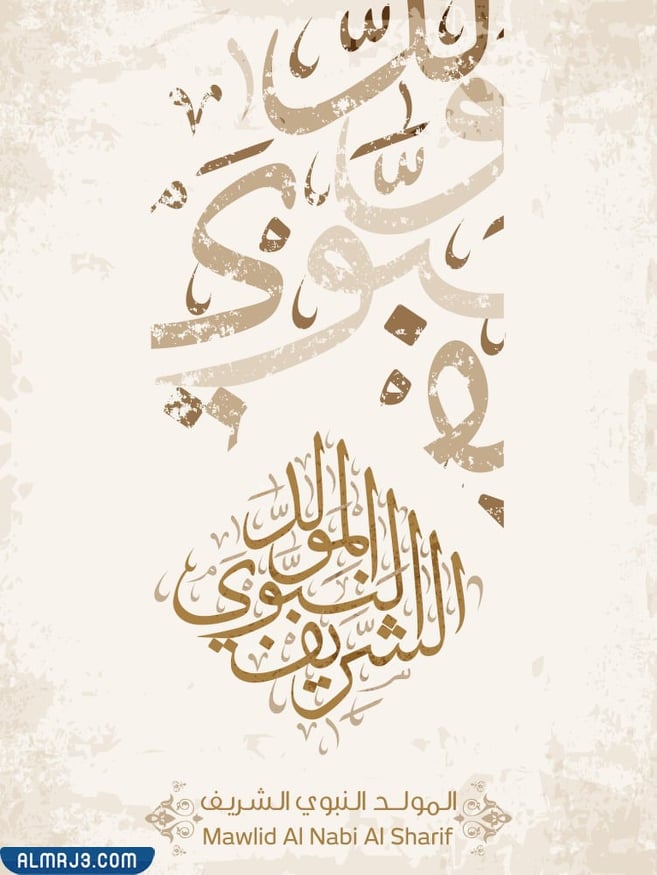 المولد
النبوي
الشريف
المولد النبوي الشريف
Mawlid Al Nabi Al Sharif
ALMRJ3.COM